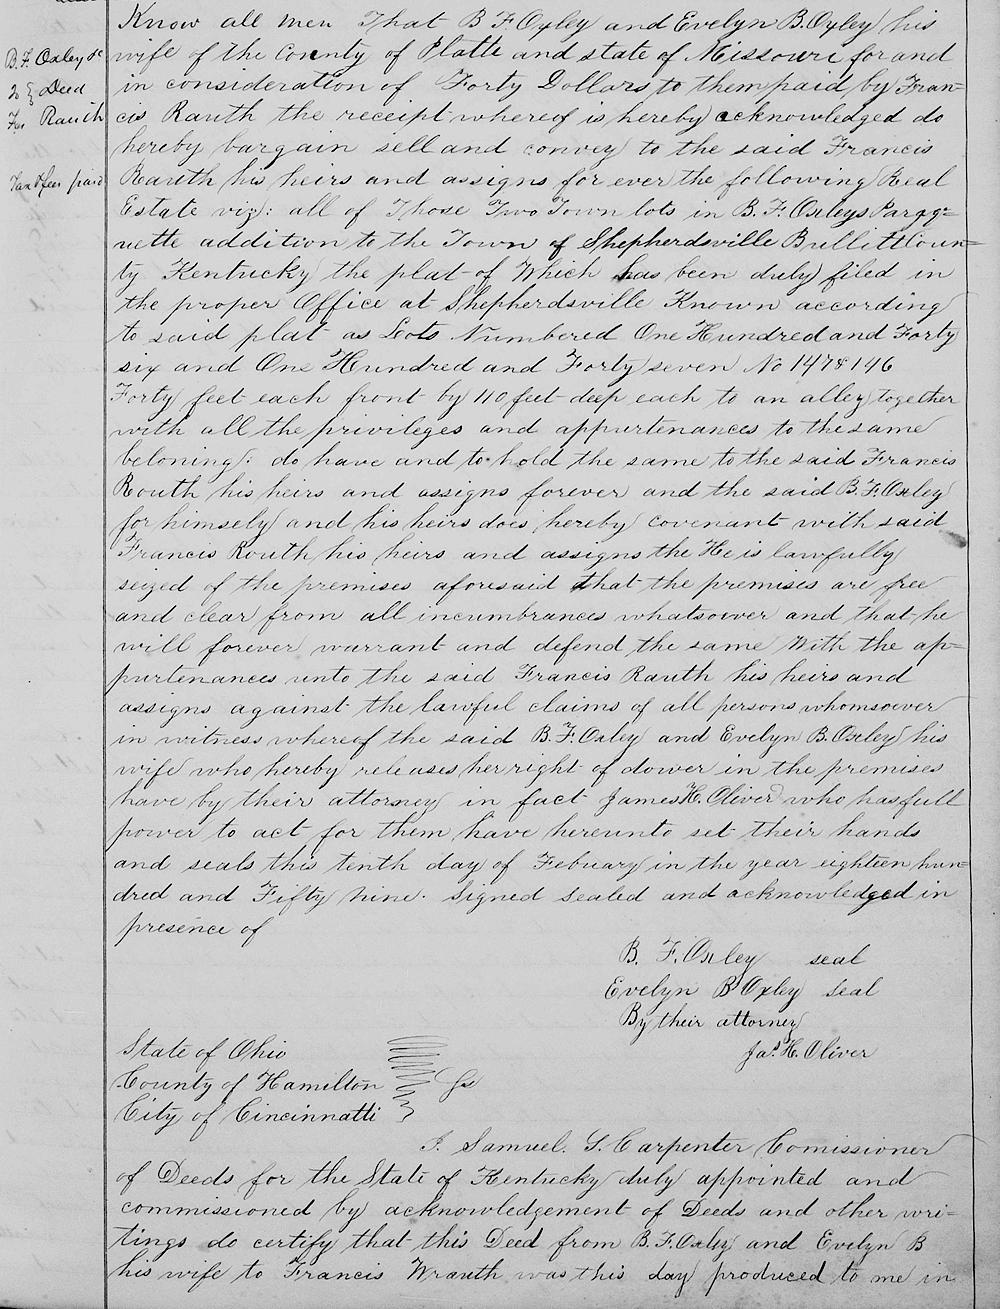 B. F. Oxley &c
to } Deed
Fs. Rauth
Tax & fees paid
Know all men That B F Oxley and Evelyn B. Oxley his
wife of the County of Platte and state of Missouri for and
in consideration of Forty Dollars to them paid by Fran-
cis Rauth the receipt whereof is hereby acknowledged do
hereby bargain sell and convey to the said Francis
Rauth his heirs and assigns for ever the following Real
Estate viz: all of Those Two Town lots in B. F. Oxleys Parqq-
uette addition to the Town of Shepherdsville Bullitt Coun-
ty Kentucky the plat of Which has been duly filed in
the proper Office at Shepherdsville Known according
to said plat as Lots Numbered One Hundred and Forty
six and One Hundred and Forty seven No 147 & 146
Forty feet each front by 110 feet deep each to an alley together
with all the privileges and appurtenances to the same
beloning. do have and to hold the same to the said Francis
Routh his heirs and assigns forever and the said B. F. Oxley
for himsely and his heirs does hereby covenant with said
Francis Routh his heirs and assigns the He is lawfully
seized of the premises aforesaid that the premises are free
and clear from all incumbrances whatsower and that he
will forever warrant and defend the same With the ap-
purtenances unto the said Francis Rauth his heirs and
assigns against the lawful claims of all persons whomsoever
in witness whereof the said B. F. Oxley and Evelyn B. Oxley his
wife who hereby releases her right of dower in the premises
have by their attorney in fact James H. Oliver who has full
power to act for them have hereunto set their hands
and seals this tenth day of Febuary in the year eighteen hun-
dred and Fifty nine. Signed Sealed and acknowledged in
presence of
B. F. Oxley seal
Evelyn B Oxley seal
By their attorney
Jas. H. Oliver
State of Ohio
County of Hamilton } Ss
City of Cincinnatti
I. Samuel. S. Carpenter Comissioner
of Deeds for the State of Kentucky duly appointed and
commissioned by acknowledgement of Deeds and other wri-
tings do certify that this Deed from B. F. Oxley and Evelyn B
his wife to Francis Wrauth was this day produced to me in